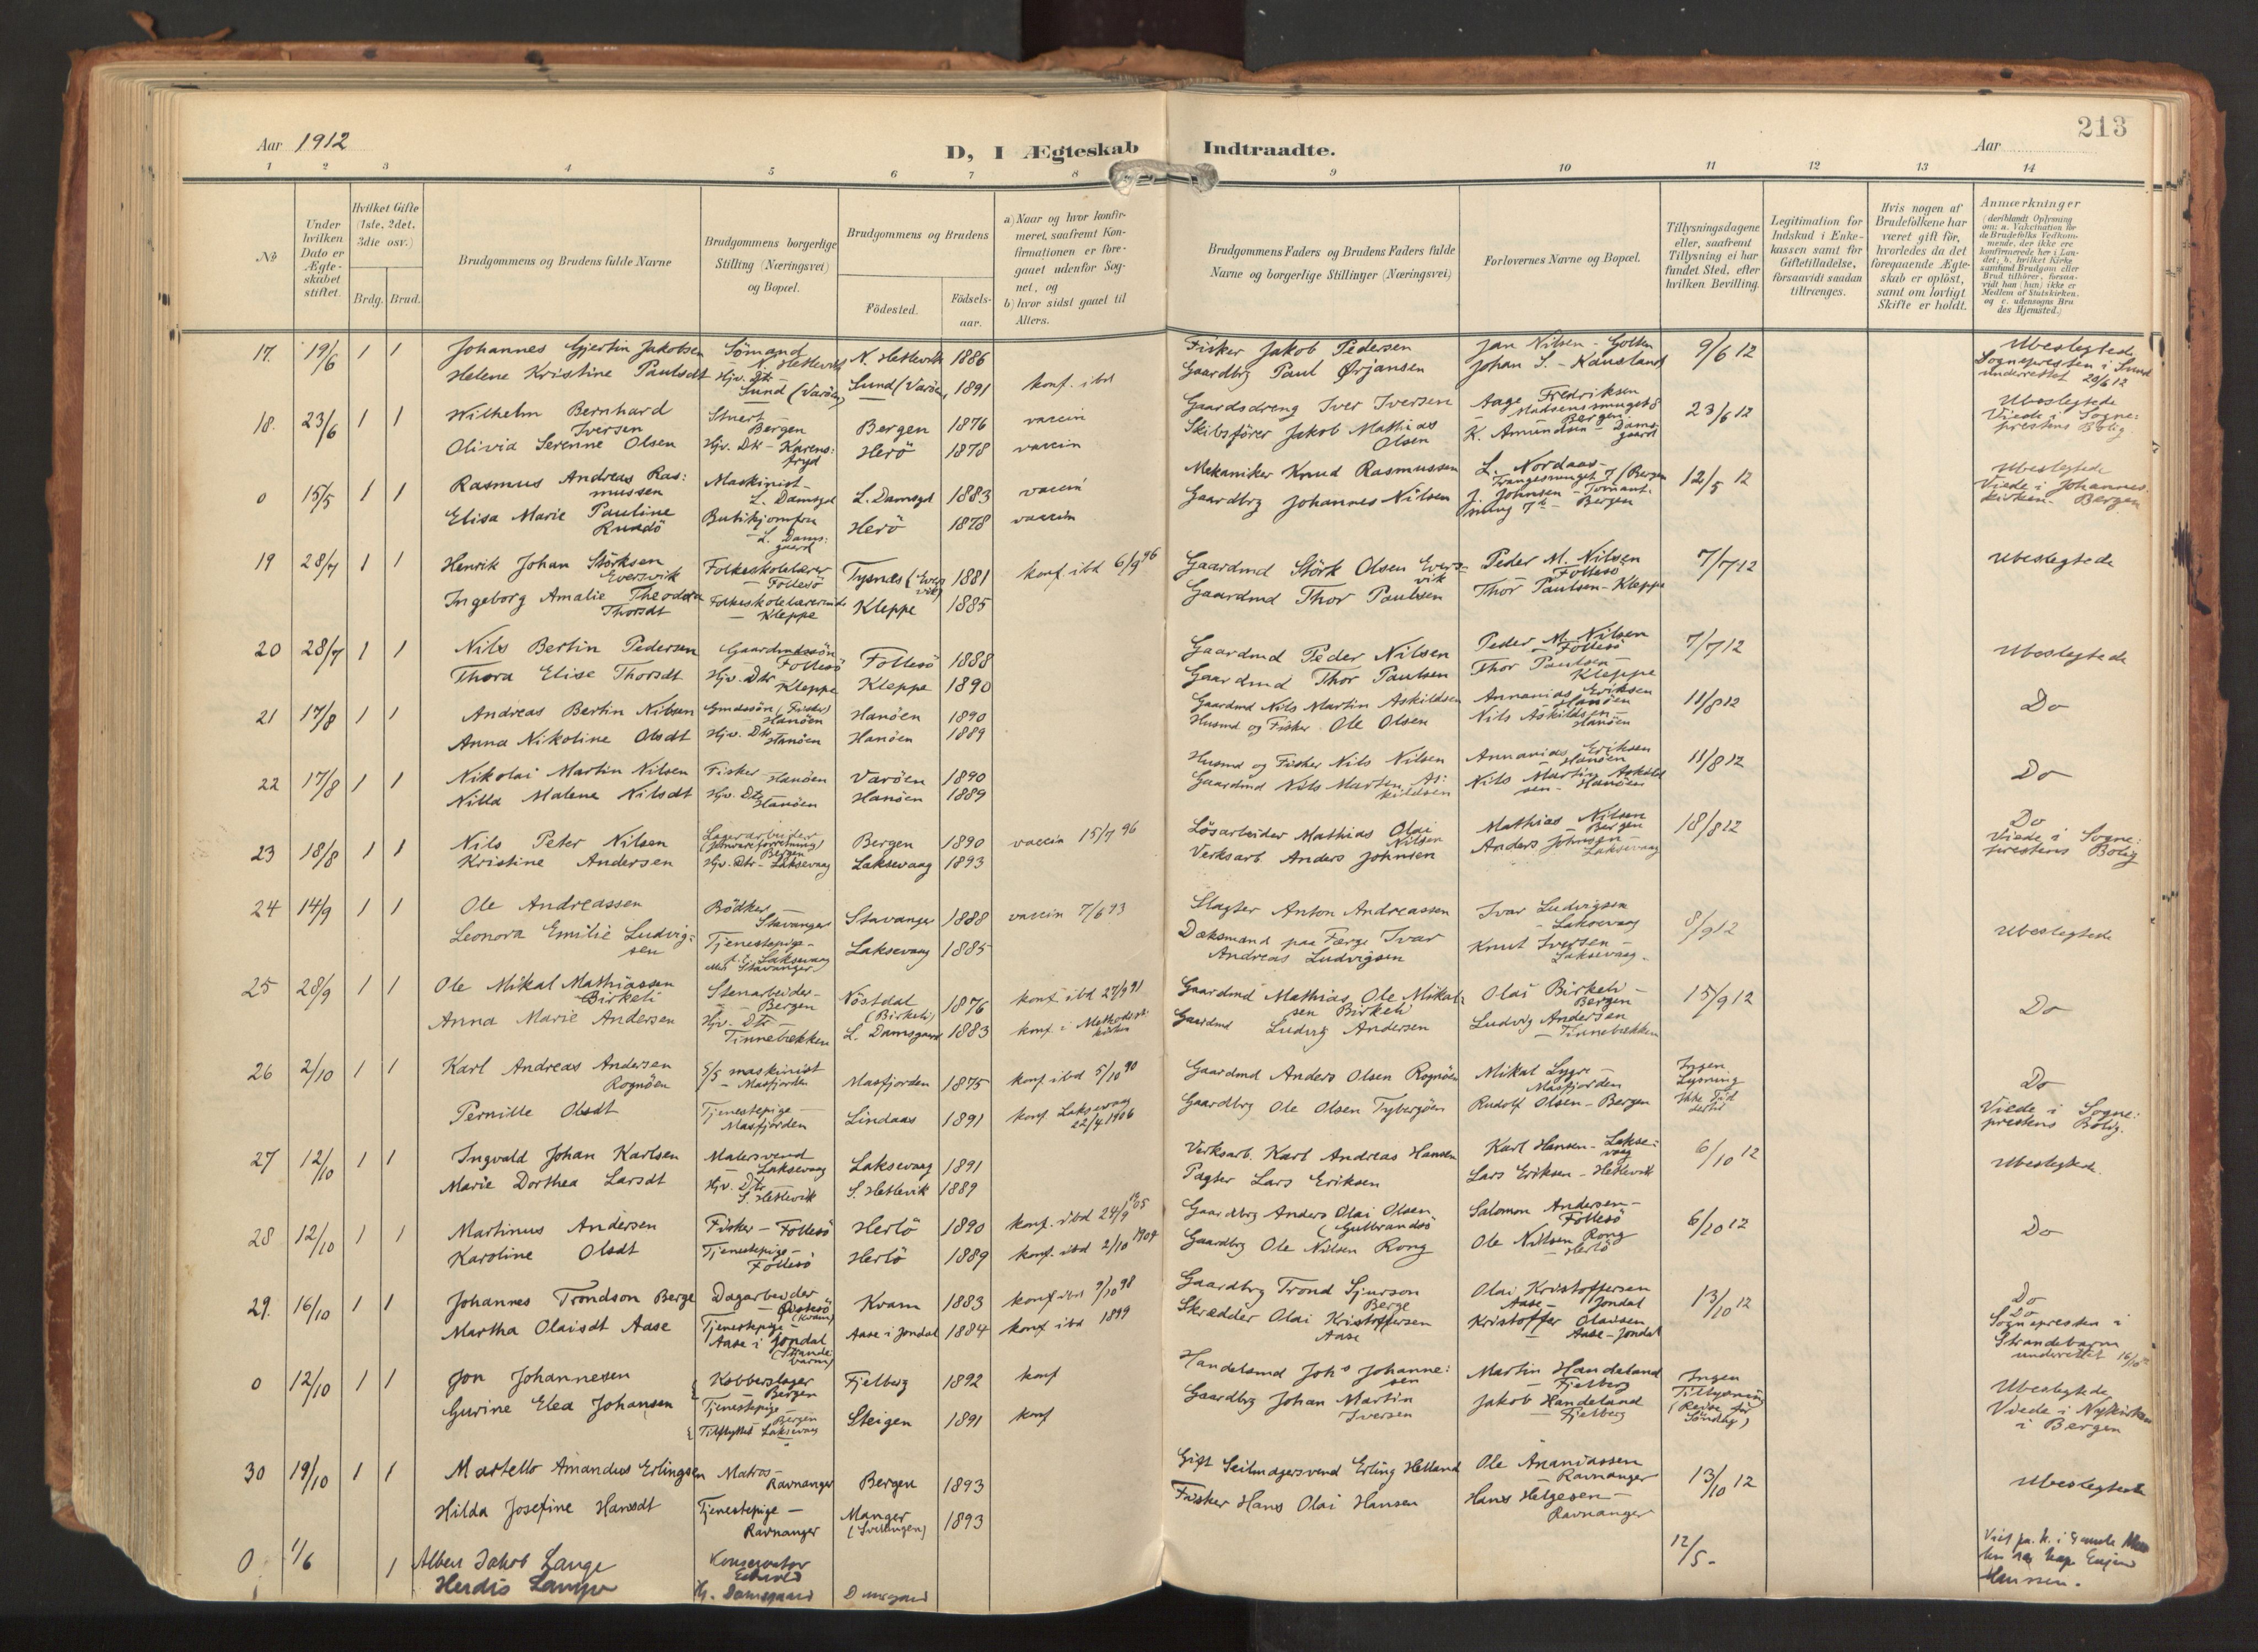 213
Aar 1912
D, I Ægteskab Indtraadte.
Aar
1 2 3 4 5 6 7 8 9 10 11 12 13 14
No
Under hvilken Dato er Ægteskabet stiftet.
Hvilket Gifte (1ste, 2det, 3die osv.)
Brdg. Brud.
Brudgommens og Brudens fulde Navne
Brudgommens borgerlige Stilling (Næringsvei) og Bopæl.
Brudgommens og Brudens
Födested.
Födsels-aar.
a) Naar og hvor konfirmeret, saafremt Konfirmationen er foregaaet udenfor Sognet, og
b) hvor sidst gaaet til Alters.
Brudgommens Faders og Brudens Faders fulde Navne og borgerlige Stillinger (Næringsvei)
Forlovernes Navne og Bopæl.
Tillysningsdagene eller, saafremt Tillysning ei har fundet Sted, efter hvilken Bevilling.
Legitimation for Indskud i Enkekassen samt for Giftetilladelse, forsaavidt saadan tiltrænges.
Hvis nogen af Brudefolkene har været gift før, hvorledes da det foregaaende Ægteskab er oplöst, samt om lovligt Skifte er holdt.
Anmærkninger
(deriblandt Oplysning om: a. Vakcination for de Brudefolks Vedkommende, der ikke ere konfirmerede her i Landet; b. hvilket Kirkesamfund Brudgom eller Brud tilhører, forsaavidt han (hun) ikke er Medlem af Statskirken, og c. udensogns Brudes Hjemsted.)
17. 19/6 1 1 Johannes Gjertin Jakobsen Sömand N. Hetlevik N. Hetlevik 1886 Fisker Jakob Pedersen Jan Nilsen - Golten 9/6 12 Ubeslegtede
Helene Kristine Paulsdt Hjv. Dtr. - Sund (Varöen) Sund (Varöen) 1891 konf. ibd Gaardbrg Paul Ørjansen Johan S. - Kausland Sognepresten i Sund underrettet 20/6 12
18. 23/6 1 1 Wilhelm Bernhard Iversen Stuert Bergen Bergen 1876 vaccin Gaardsdreng Iver Iversen Aage Fredriksen Madsensmuget 8 Bergen 23/6 12 Ubeslegtede
Olivia Serenne Olsen Hjv. Dtr - Karensfryd Herö 1878 vaccin Skibsförer Jakob Mathias Olsen K. Amundsen - Damsgaard Viede i Sogneprestens Bolig.
0 15/5 1 1 Rasmus Andreas Rasmussen Maskinist - L. Damsgd L. Damsgd 1883 vaccin Mekaniker Knud Rasmussen L. Nordaas - 12/5 12 Ubeslegtede
Elisa Marie Pauline Rundö Butikjomfru - L. Damsgaard Herö 1878 vaccin Gaardbrg Johannes Nilsen J. Johnsen - Bergen Viede i Johanneskirken - Bergen
19 28/7 1 1 Henrik Johan Störksen Eversvik Folkeskolelærer - Follesö Tysnes (Eversvik) 1881 konf. ibd 6/9 96 Gaardmd Störk Olsen Eversvik Peder M. Nilsen Follesö 7/7 12 Ubeslegtede
Ingeborg Amalie Theodora Thorsdt Folkeskolelærerinde - Kleppe Kleppe 1885 Gaardmd Thor Paulsen Thor Paulsen - Kleppe
20 28/7 1 1 Nils Bertin Pedersen Gaardmdssön Follesö Follesö 1888 Gaardmd Peder Nilsen Peder M. Nilsen - Follesö 7/7 12 Ubeslegtede
Thora Elise Thorsdt Hjv. Dtr Kleppe Kleppe 1890 Gaardmd Thor Paulsen Thor Paulsen - Kleppe
21 17/8 1 1 Andreas Bertin Nilsen Gmdssön (Fisker) Hanöen Hanöen 1890 Gaardmd Nils Martin Askildsen Annanias Eriksen - Hanöen 11/8 12 Do
Anna Nikoline Olsdt Hjv. Dtr Hanöen Hanöen 1889 Husmd og Fisker Ole Olsen Nils Askildsen - Hanöen
22 17/8 1 1 Nikolai Martin Nilsen Fisker - Hanöen Varöen 1890 Husmd og Fisker Nils Nilsen Annanias Eriksen Hanöen 11/8 12 Do
Nilla Malena Nilsdt Hjv. Dtr Hanöen Hanöen 1889 Gaardmd Nils Martin Askildsen Nils Martin Askildsen - Hanöen
23 18/8 1 1 Nils Peter Nilsen Lagerarbeider Bergen Bergen 1890 vaccin 15/7 96 Lösarbeider Mathias Olai Nilsen Mathias Nilsen - Bergen 18/8 12 Do
Kristine Andersen Hjv. Dtr - Laksevaag Laksevaag 1893 Verksarb. Anders Johnsen Anders Johnsen - Laksevaag Viede i Sogneprestens Bolig
24 14/9 1 1 Ole Andreassen Bödker - Stavanger Stavanger 1888 vaccin 7/6 93 Slagter Anton Andreassen Ivar Ludvigsen - Laksevaag 8/9 12 Ubeslegtede
Leonora Emilie Ludvigsen Tjenestepige - p. t. Laksevaag ellers Stavanger Laksevaag 1885 Dæksmand paa Færge Ivar Andreas Ludvigsen Knut Iversen - Laksevaag.
25 28/9 1 1 Ole Mikal Mathiassen Birkeli Stenarbeider - Bergen Nöstdal (Birkeli) 1876 konf ibd 27/9 91 Gaardmd Mathias Ole Mikalsen Birkeli Olai Birkeli - Bergen 15/9 12 Do
Anna Marie Andersen Hjv. Dtr - Tinnebekken L. Damsgaard 1883 konf i Methodistkirken Gaardmd Ludvig Andersen Ludvig Andersen - Tinnebekken
26 2/10 1 1 Karl Andreas Andersen Rognöen S/S maskinist - Masfjorden Masfjorden 1875 konf ibd 5/10 90 Gaardmd Anders Olsen Rognöen Mikal Lygre - Masfjorden Ingen Lysning Do
Pernille Olsdt Tjenestepige - Masfjorden Lindaas 1891 konf Laksevaag 22/4 1906 Gaardbrg Ole Olsen Tybergöen Rudolf Olsen - Bergen Ikke Tid dertil Viede i Sogneprestens Bolig.
27 12/10 1 1 Ingvald Johan Karlsen Malersvend Laksevaag Laksevaag 1891 Verksarb. Karl Andreas Hansen Karl Hansen - Laksevaag 6/10 12 Ubeslegtede.
Marie Dorthea Larsdt Hjv. Dtr S. Hetlevik S. Hetlevik 1889 Pagter Lars Eriksen Lars Eriksen - Hetlevik
28 12/10 1 1 Martinus Andersen Fisker - Follesö Herlö 1890 konf. ibd 24/9 1905 Gaardbrg Anders Olai Olsen (Gulbrandsö Salomon Andersen - Follesö 6/10 12 Do
Karoline Olsdt Tjenestepige - Follesö Herlö 1889 konf. ibd 2/10 1904 Gaardbrg Ole Nilsen Rong Ole Nilsen Rong - Herlö
29. 16/10 1 1 Johannes Trondson Berge Dagarbeider - Östesö (Kvam) Kvam 1883 konf ibd 9/10 98 Gaardbrg Trond Sjurson Berge Olai Kristoffersen Aase - Jondal 13/10 12 Do
Martha Olaisdt Aase Tjenestepige - Aase i Jondal (Strandebarm) Aase i Jondal 1884 konf ibd 1899 Skrædder Olai Kristoffersen Aase Kristoffer Olaisen - Aase - Jondal Do Sognepresten i Strandebarm underrettet 16/10 12
0 12/10 1 1 Jon Johannesen Kobberslager Bergen Fjelberg 1892 konf Handelsmd Johs Johannesen Martin Handeland - Fjelberg Ingen Tillysning (Reise før Söndag) Ubeslegtede
Gurine Elea Johansen Tjenestepige - Bergen Tilflyttet Laksevaag Steigen 1891 konf Gaardbrg Johan Martin Iversen Jakob Handeland - Fjelberg Viede i Nykirken i Bergen
30 19/10 1 1 Martello Amandus Erlingsen Matros - Ravnanger Bergen 1893 Gift Seilmagersvend Erling Hetland Ole Ananiassen - Ravnanger 13/10 12 Ubeslegtede
Hilda Josefine Hansdt Tjenestepige - Ravnanger Manger 1893 Fisker Hans Olai Hansen Hans Helgesen - Ravnanger
0 1/6 1 Albert Jakob Lange Konservator 12/5 -
Herdis Hj. Damsgaard Damsgaard